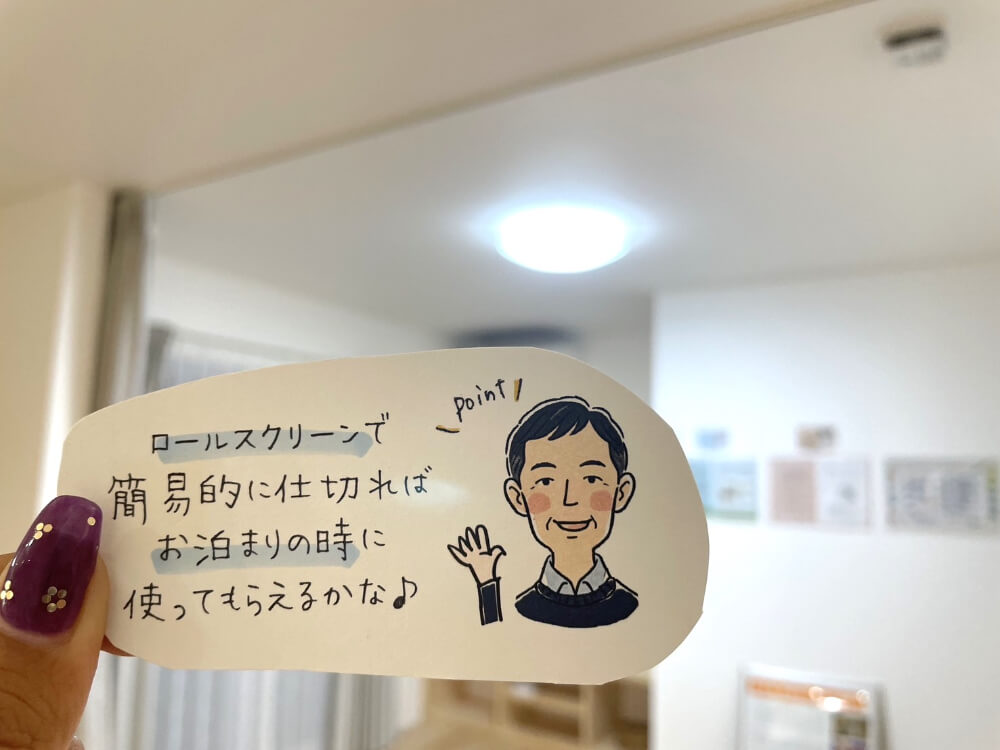 point
ロールスクリーンで
簡易的に仕切れば
お泊まりの時に
使ってもらえるかな♪